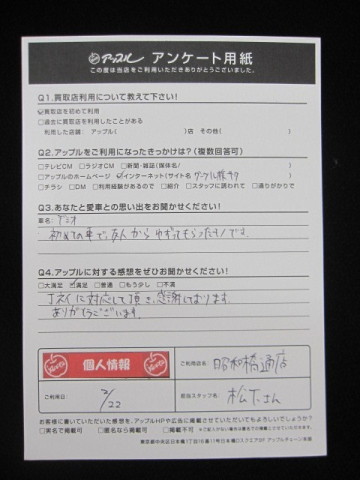 アップル アンケート用紙
この度は当店をご利用いただきありがとうございました。
Q1.買取店利用について教えて下さい!
☑買取店を初めて利用
□過去に買取店を利用したことがある
利用した店舗: アップル( )店 その他( )
Q2.アップルをご利用になったきっかけは?(複数回答可)
□テレビCM □ラジオCM □新聞・雑誌(媒体名/ )
□アップルのホームページ ☑インターネット(サイト名 グーグル検索)
□チラシ □DM □利用経験があるので □紹介 □スタッフに誘われて □通りがかりで
Q3.あなたと愛車との思い出をお聞かせください!
車名:デミオ
初めての車で、友人からゆずってもらったものです。
Q4.アップルに対する感想をぜひお聞かせください!
□大満足 ☑満足 □普通 □もう少し □不満
丁ねいに対応して頂き、感謝しております。
ありがとうございます。
個人情報
ご利用店名: 昭和橋通店
ご利用日: 2/22
担当スタッフ名: 松下さん
お客様に書いていただいた感想を、アップルHPや広告に掲載させていただいてもよろしいでしょうか?
□実名で掲載可 □匿名なら掲載可 □掲載不可